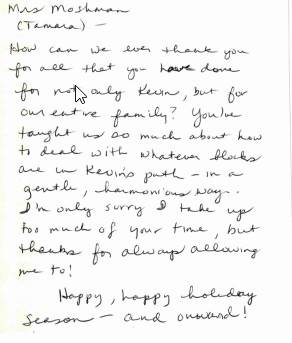 Mrs Moshman
(Tamara) —
How can we ever thank you
for all that you have done
for not only Kevin, but for
our entire family? You've
taught us so much about how
to deal with whatever blocks
are in Kevin's path - in a
gentle, harmonious way.
I'm only sorry I take up
too much of your time, but
thanks for always allowing
me to!
Happy, happy holiday
season — and onward!